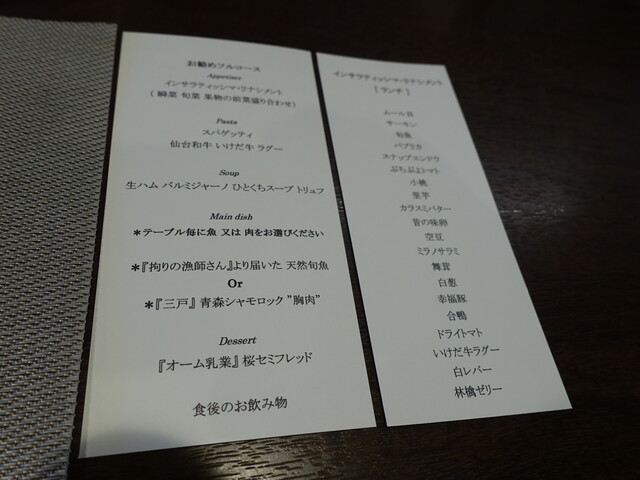 お勧めフルコース
Appetizer
インサラティッシマ・リナシメント
( 瞬菜 旬菜 果物の前菜盛り合わせ)
Pasta
スパゲッティ
仙台和牛 いけだ牛 ラグー
Soup
生ハム パルミジャーノ ひとくちスープ トリュフ
Main dish
＊テーブル毎に魚 又は 肉をお選びください
＊『拘りの漁師さん』より届いた 天然旬魚
Or
＊『三戸』 青森シャモロック "胸肉"
Dessert
『オーム乳業』 桜セミフレッド
食後のお飲み物
インサラティッシマ・リナシメント
[ ランチ ]
ムール貝
サーモン
旬魚
パプリカ
スナップエンドウ
ぷちぷよトマト
小桃
里芋
カラスミバター
昔の味卵
空豆
ミラノサラミ
舞茸
白葱
幸福豚
合鴨
ドライトマト
いけだ牛ラグー
白レバー
林檎ゼリー